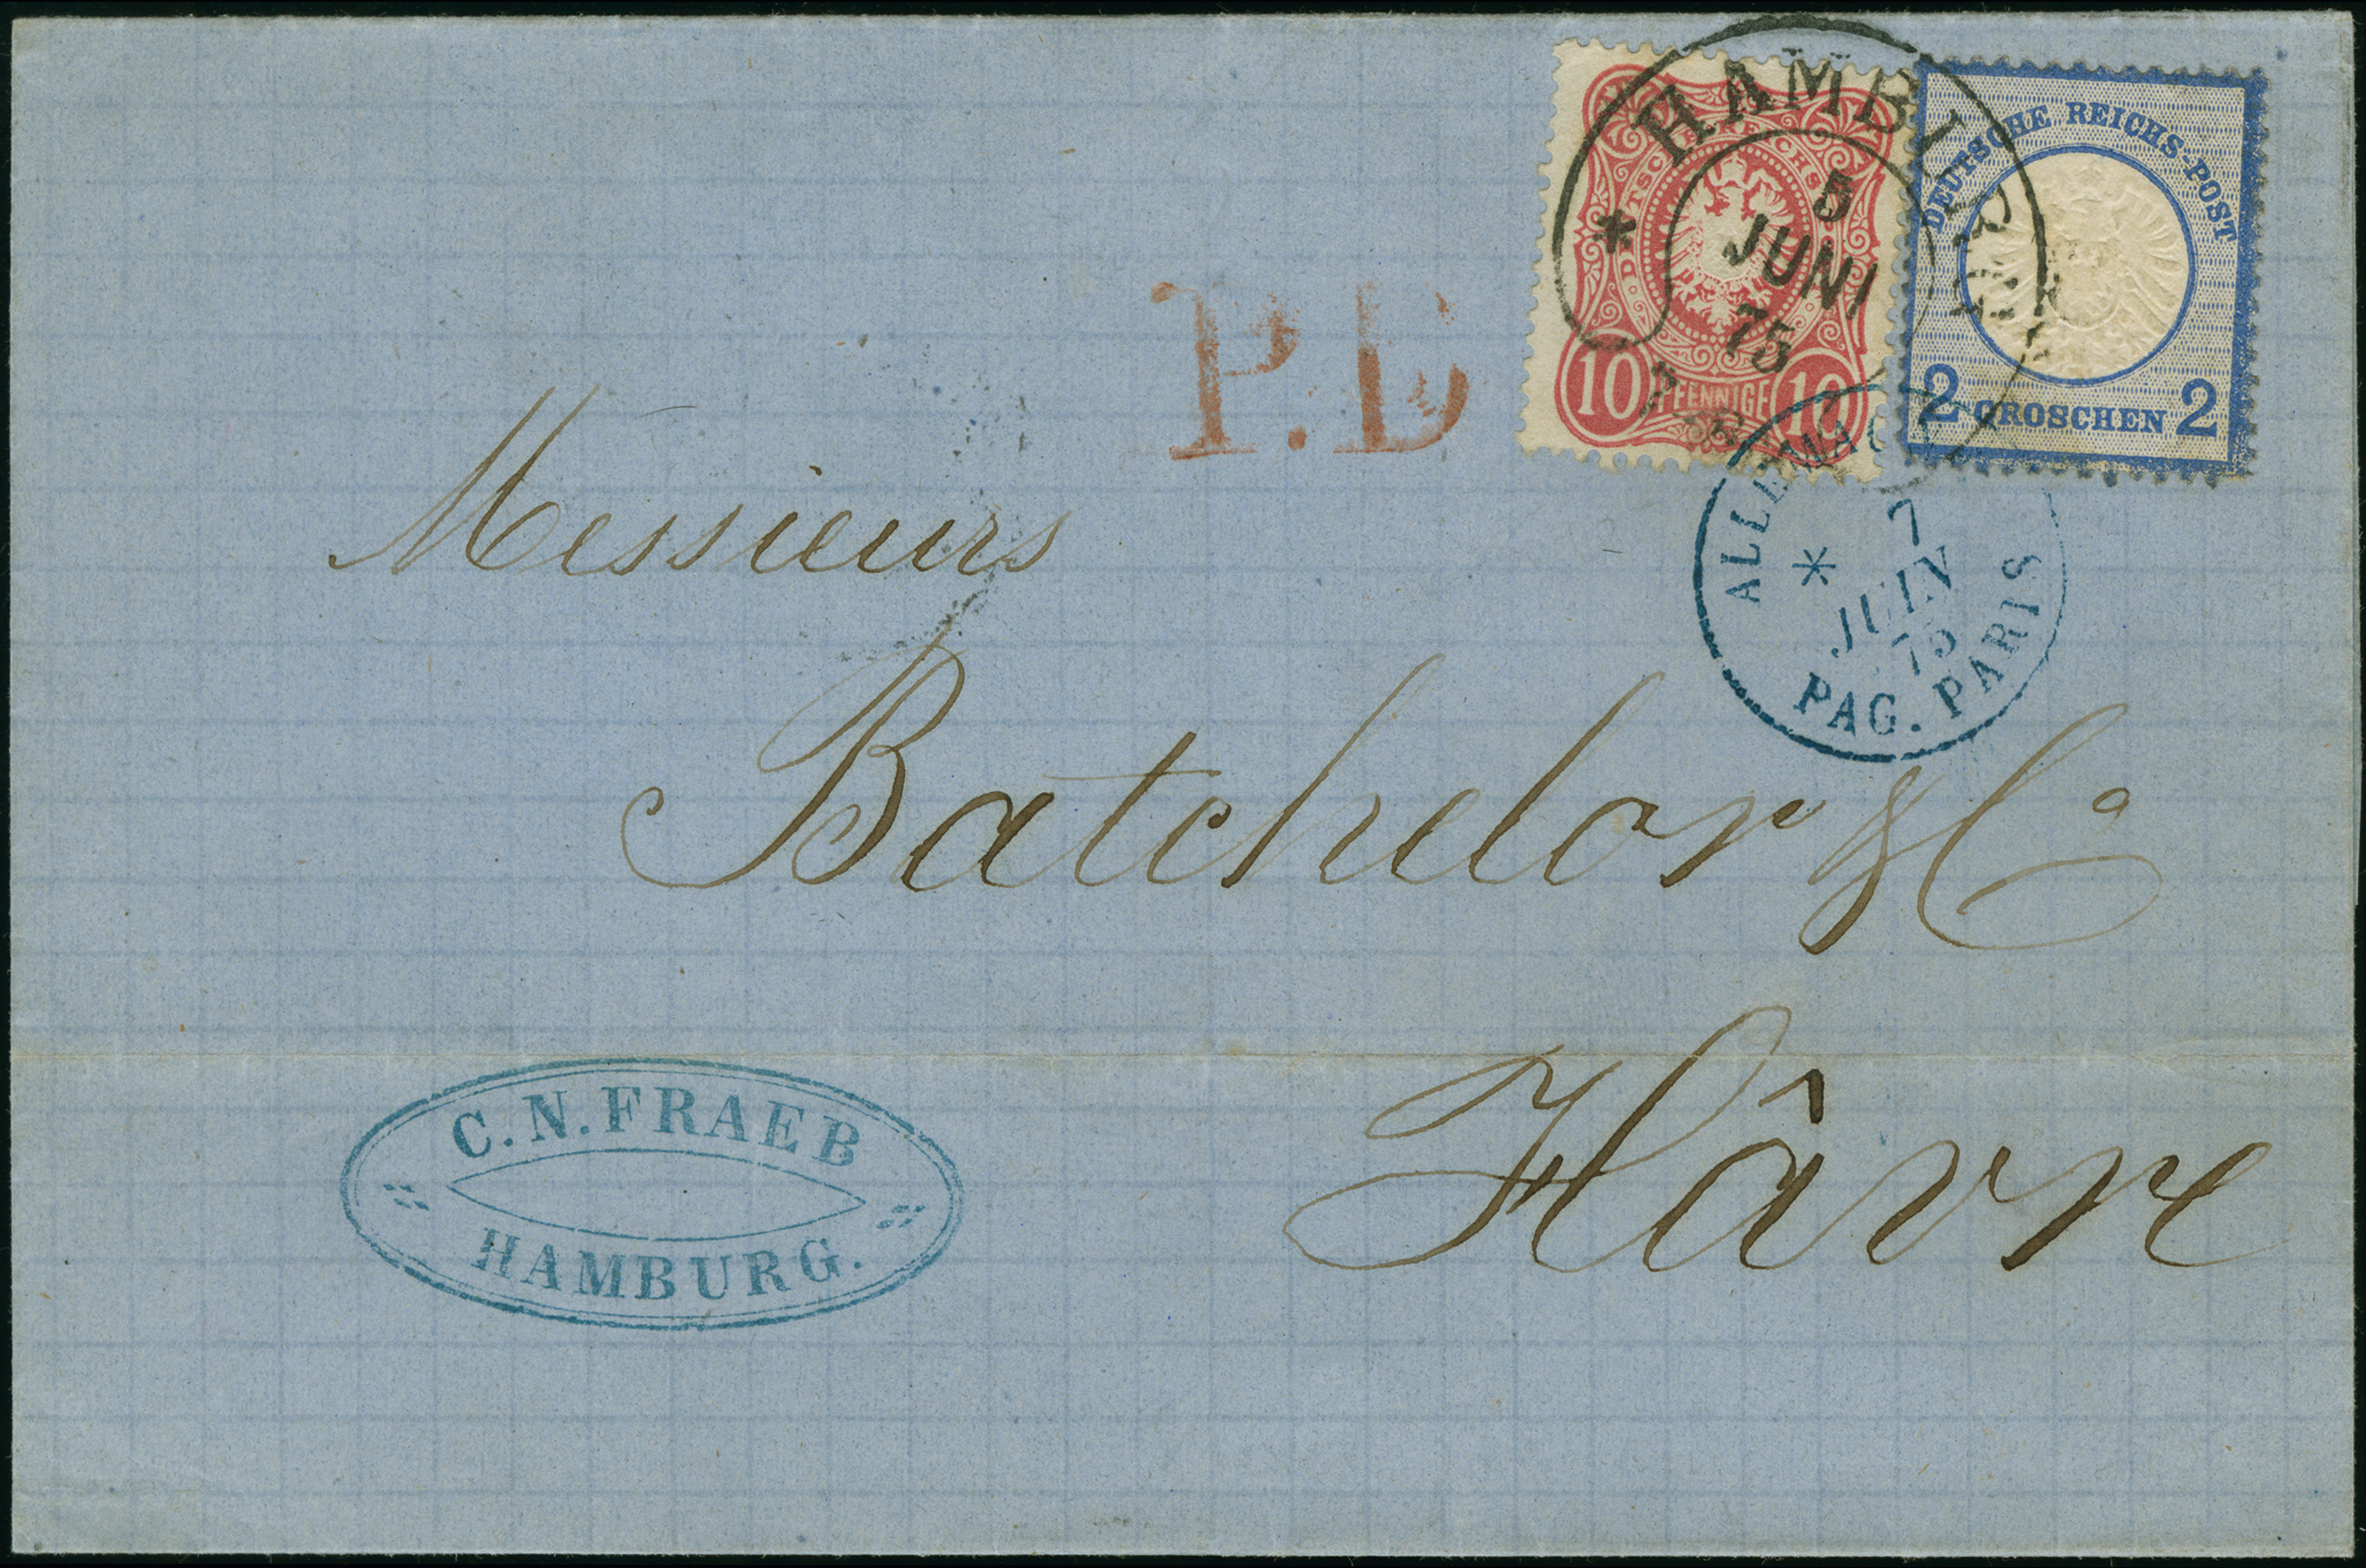 HAMBURG
5
JUNI
75
DEUTSCHE REICHS-POST
DEUTSCHE REICHS-POST
10 PFENNIGE 10
2 GROSCHEN 2
P.D
ALLEMAGNE
7
JUIN
75
PAG. PARIS
Messieurs
Batchelor & Co
Hâvre
C. N. FRAEB
HAMBURG.